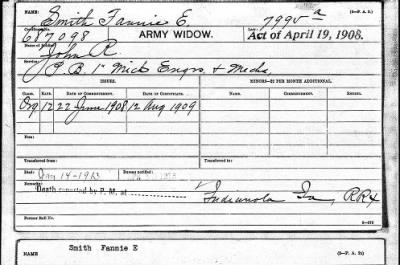 NAME: (3-P. A. D.)
Smith Fannie E.
Certificate No.
687098 ARMY WIDOW. Act of April 19, 1908.
Name of Soldier:
John R.
Service:
B. 1" Mich Engrs. & Mechs.
ISSUES. MINORS—$2 PER MONTH ADDITIONAL.
CLASS. RATE. DATE OF COMMENCEMENT. DATE OF CERTIFICATE. NAME. COMMENCEMENT. ENDING. NAME. COMMENCEMENT. ENDING.
Org 12 22 June 1908 12 Aug 1909
Transferred from: Transferred to:
Died: 14-1913 Bureau notified:
Remarks:
Death reported by P. M. at
Indianola Ia, RR4
Former Roll No.
NAME Smith Fannie E (3-P. A. D.)